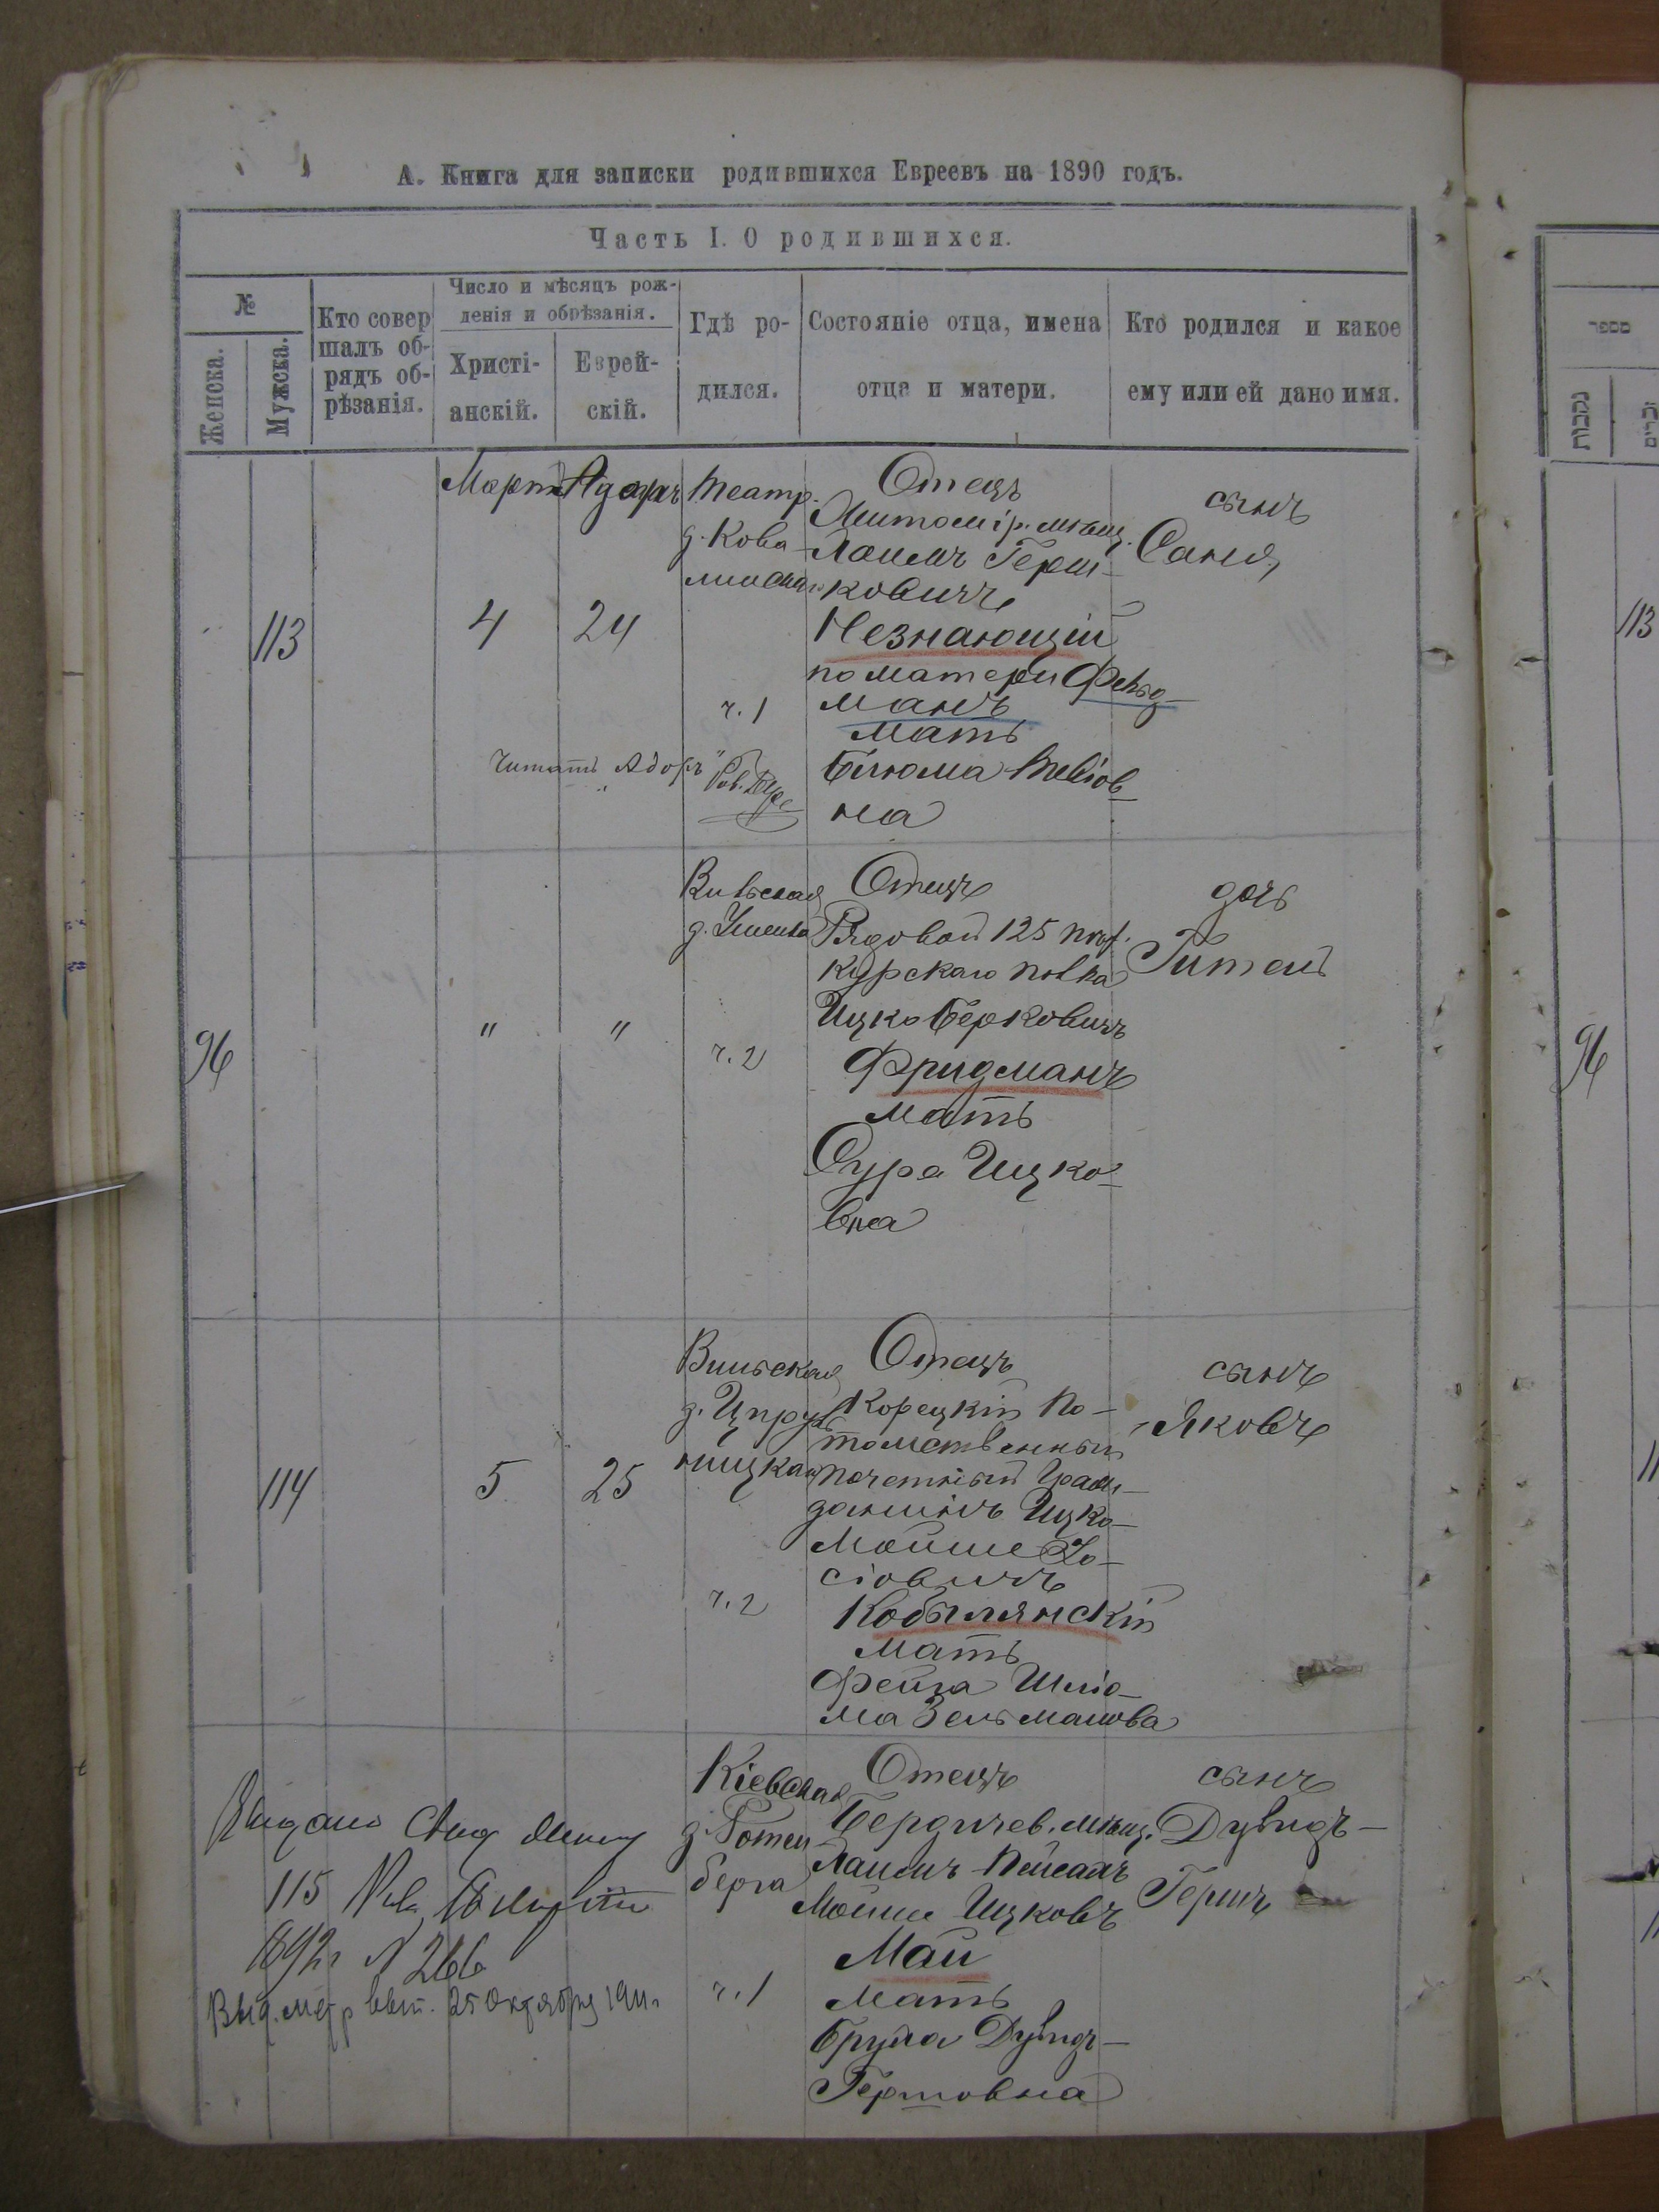 А. Книга для записки родившихся Евреевъ на 1890 годъ.
Часть I. О родившихся.
№
Женска.
Мужска.
Кто совер
шалъ об-
рядъ об-
рѣзанія.
Число и мѣсяцъ рож-
денія и обрѣзанія.
Христі-
анскій.
Еврей-
скій.
Гдѣ ро-
дился.
Состояніе отца, имена
отца и матери.
Кто родился и какое
ему или ей дано имя.
מספר
נקבות
זכרים
113
Мартъ
4
24
Театр.
д. Кова-
ч. 1
Отецъ
Житомір. мѣщ.
Хаимъ Герш-
ковичъ
Незнающій
по матери Фельд-
манъ
мать
на
сынъ
Саня
Читать "Адоръ"
113
96
"
"
д.
ч. 2
Отецъ
Рядовой 125 пѣх.
Курскаго полка
Ицко Берковичъ
Фридманъ
мать
Сура Ицко-
вна
дочь
Гитель
96
114
5
25
Вильская
ч. 2
Отецъ
Корецкій По-
томственный
почетный Граж-
данинъ Ицко-
Мойше Іо-
сіовичъ
Кобылянскій
мать
Фейга Шліо-
ма Зельманова
сынъ
Яковъ
11
115
1892г N 266
Выд. метр. 25 Октября 1911г
Кіевская
д. Готен
берга
ч. 1
Отецъ
Бердичев. мѣщ.
Хаимъ Пейсахъ
Мойше Ицковъ
Май
мать
Дувидъ-
Гершовна
сынъ
Дувидъ-
Гершъ
11